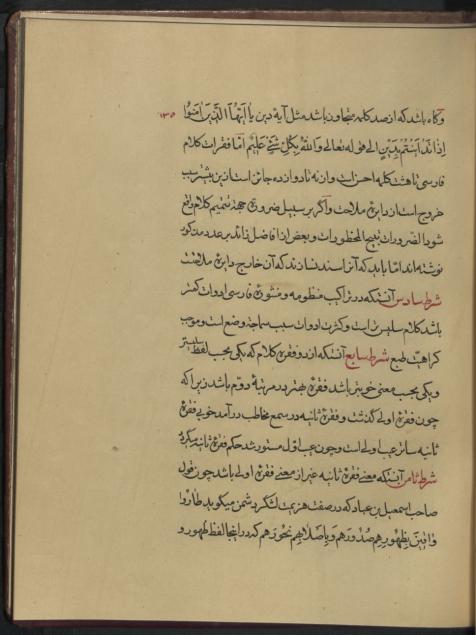 وکاه باشد که از صد کلمه متجاوز باشد مثل آیهٔ دین یا اَیُّهَا الَّذینَ اٰمَنُوا ١٣٥
اِذا تَدایَنْتُمْ بِدَیْنٍ الی قوله تعالی وَاللهُ بِکُلِّ شَیْءٍ عَلیمٌ امّا فقرات کلام
فارسی تا هشت کلمه احسن است و از نه تا دوازده جائز است ازین بیشتر سبب
خروج است از دایرهٔ ملاحت واکر بر سبیل ضرورة جهة تتمیم کلام واقع
شود الضرورات تبیح المحظورات و بعض از افاضل زائد بر عدد مذکور
نوشته اند امّا باید که آنرا سند نسازند که آن خارج دایرهٔ ملاحتست
شرط سادس آنستکه در تراکیب منظومه و منثورهٔ فارسی ادوات کمتر
باشد کلام سلیس تر است و کثرت ادوات سبب سماجة وضع است و موجب
کراهیّت طبع شرط سابع آنستکه از دو فقرهٔ کلام که یکی بحسب لفظ بهتر
و یکی بحسب معنی خوبتر باشد فقرهٔ بهتر در مرتبهٔ دوّم باشد زیرا که
چون فقرهٔ اولی کذشت و فقرهٔ ثانیه در سمع مخاطب درآمد خوبی فقرهٔ
ثانیه ساتر عیب اولی است و چون عیب اوّل مستور شد حکم فقرهٔ ثانیه میکیرد
شرط ثامن آنستکه معنی فقرهٔ ثانیه غیر از معنی فقرهٔ اولی باشد چون قول
صاحب اسمعیل بن عباد که در صفت هزیمت لشکر دشمن میکوید طاروا
واقینَ بِظُهُورِهِم صُدُورَهُم وَ بِاَصْلابِهِم نُحُورَهُم که در اینجا لفظ ظهور و